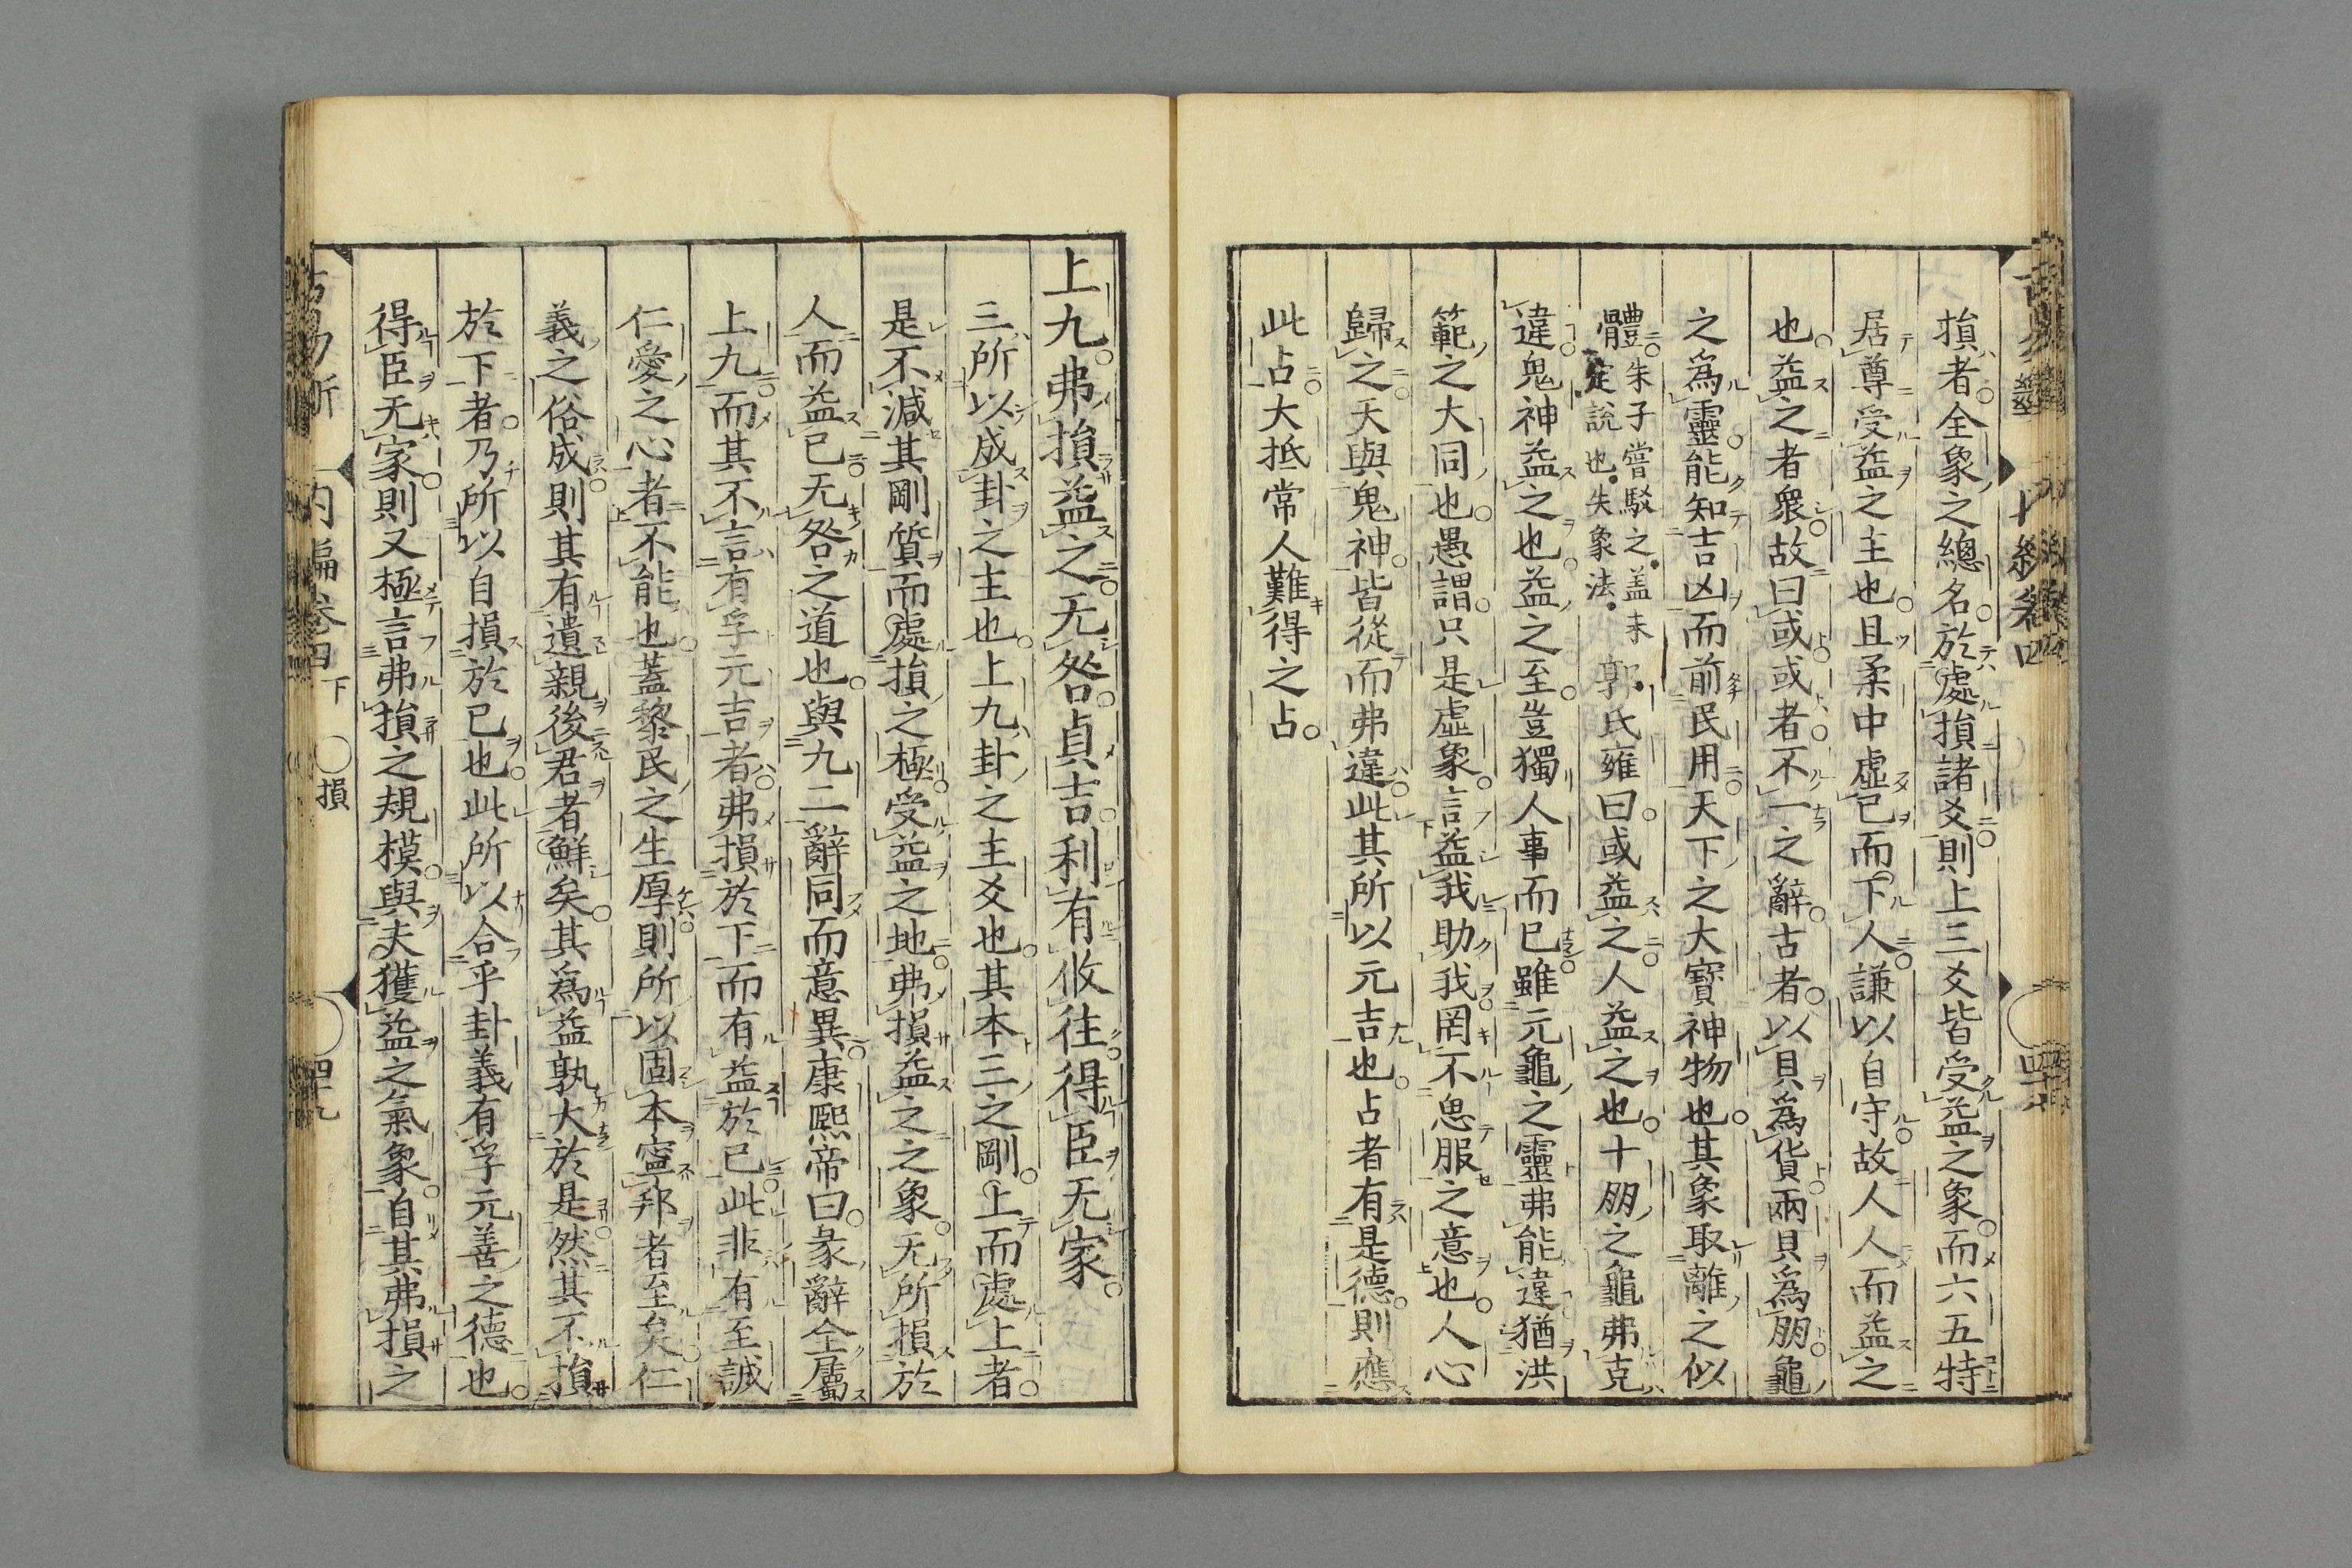 損者全象之總名於處損諸爻則上三爻皆受益之象而六五特
居尊受益之主也且柔中虛已而下人謙以自守故人人而益之
也益之者衆故曰或或者不一之辭古者以貝為貨兩貝為朋龜
之為靈能知吉凶而前民用天下之大寶神物也其象取離之似
體朱子嘗駁之蓋未定說也失象法郭氏雍曰或益之人益之也十朋之龜弗克
違鬼神益之也益之至豈獨人事而已雖元龜之靈弗能違猶洪
範之大同也愚謂只是虛象言益我助我罔不思服之意也人心
歸之天與鬼神皆從而弗違此其所以元吉也占者有是德則應
此占大抵常人難得之占
上九弗損益之无咎貞吉利有攸往得臣无家
三所以成卦之主也上九卦之主爻也其本三之剛上而處上者
是不減其剛質而處損之極受益之地弗損益之之象无所損於
人而益已无咎之道也與九二辭同而意異康熙帝曰彖辭全屬
上九而其不言有孚元吉者弗損於下而有益於已此非有至誠
仁愛之心者不能也蓋黎民之生厚則所以固本寧邦者至矣仁
義之俗成則其有遺親後君者鮮矣其為益孰大於是然其不損
於下者乃所以自損於已也此所以合乎卦義有孚元善之德也
得臣无家則又極言弗損之規模與夫獲益之氣象自其弗損之
內編卷四下 損 四十九